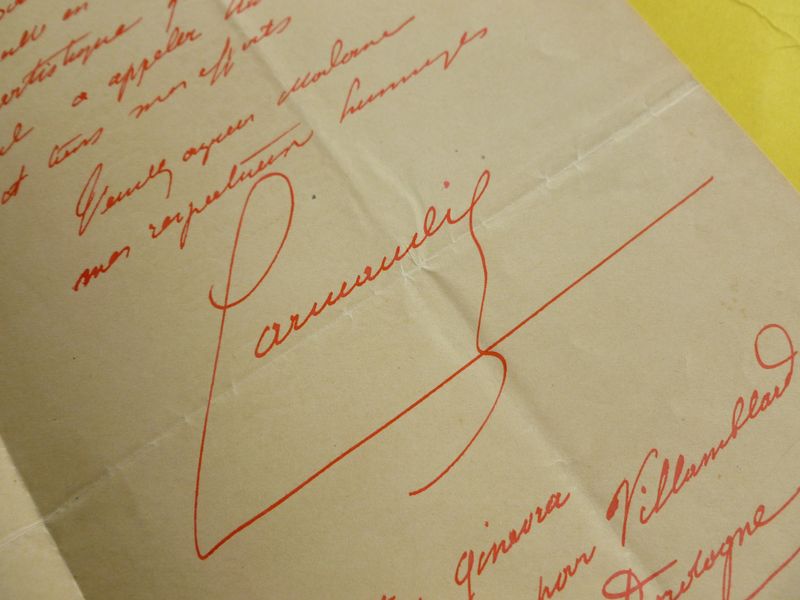 en
artistique
à appeler
et tous mes efforts
Veuillez agréer Madame
mes respectueux hommages
Larmandie
Ginevra
pour Villamblard
Dordogne